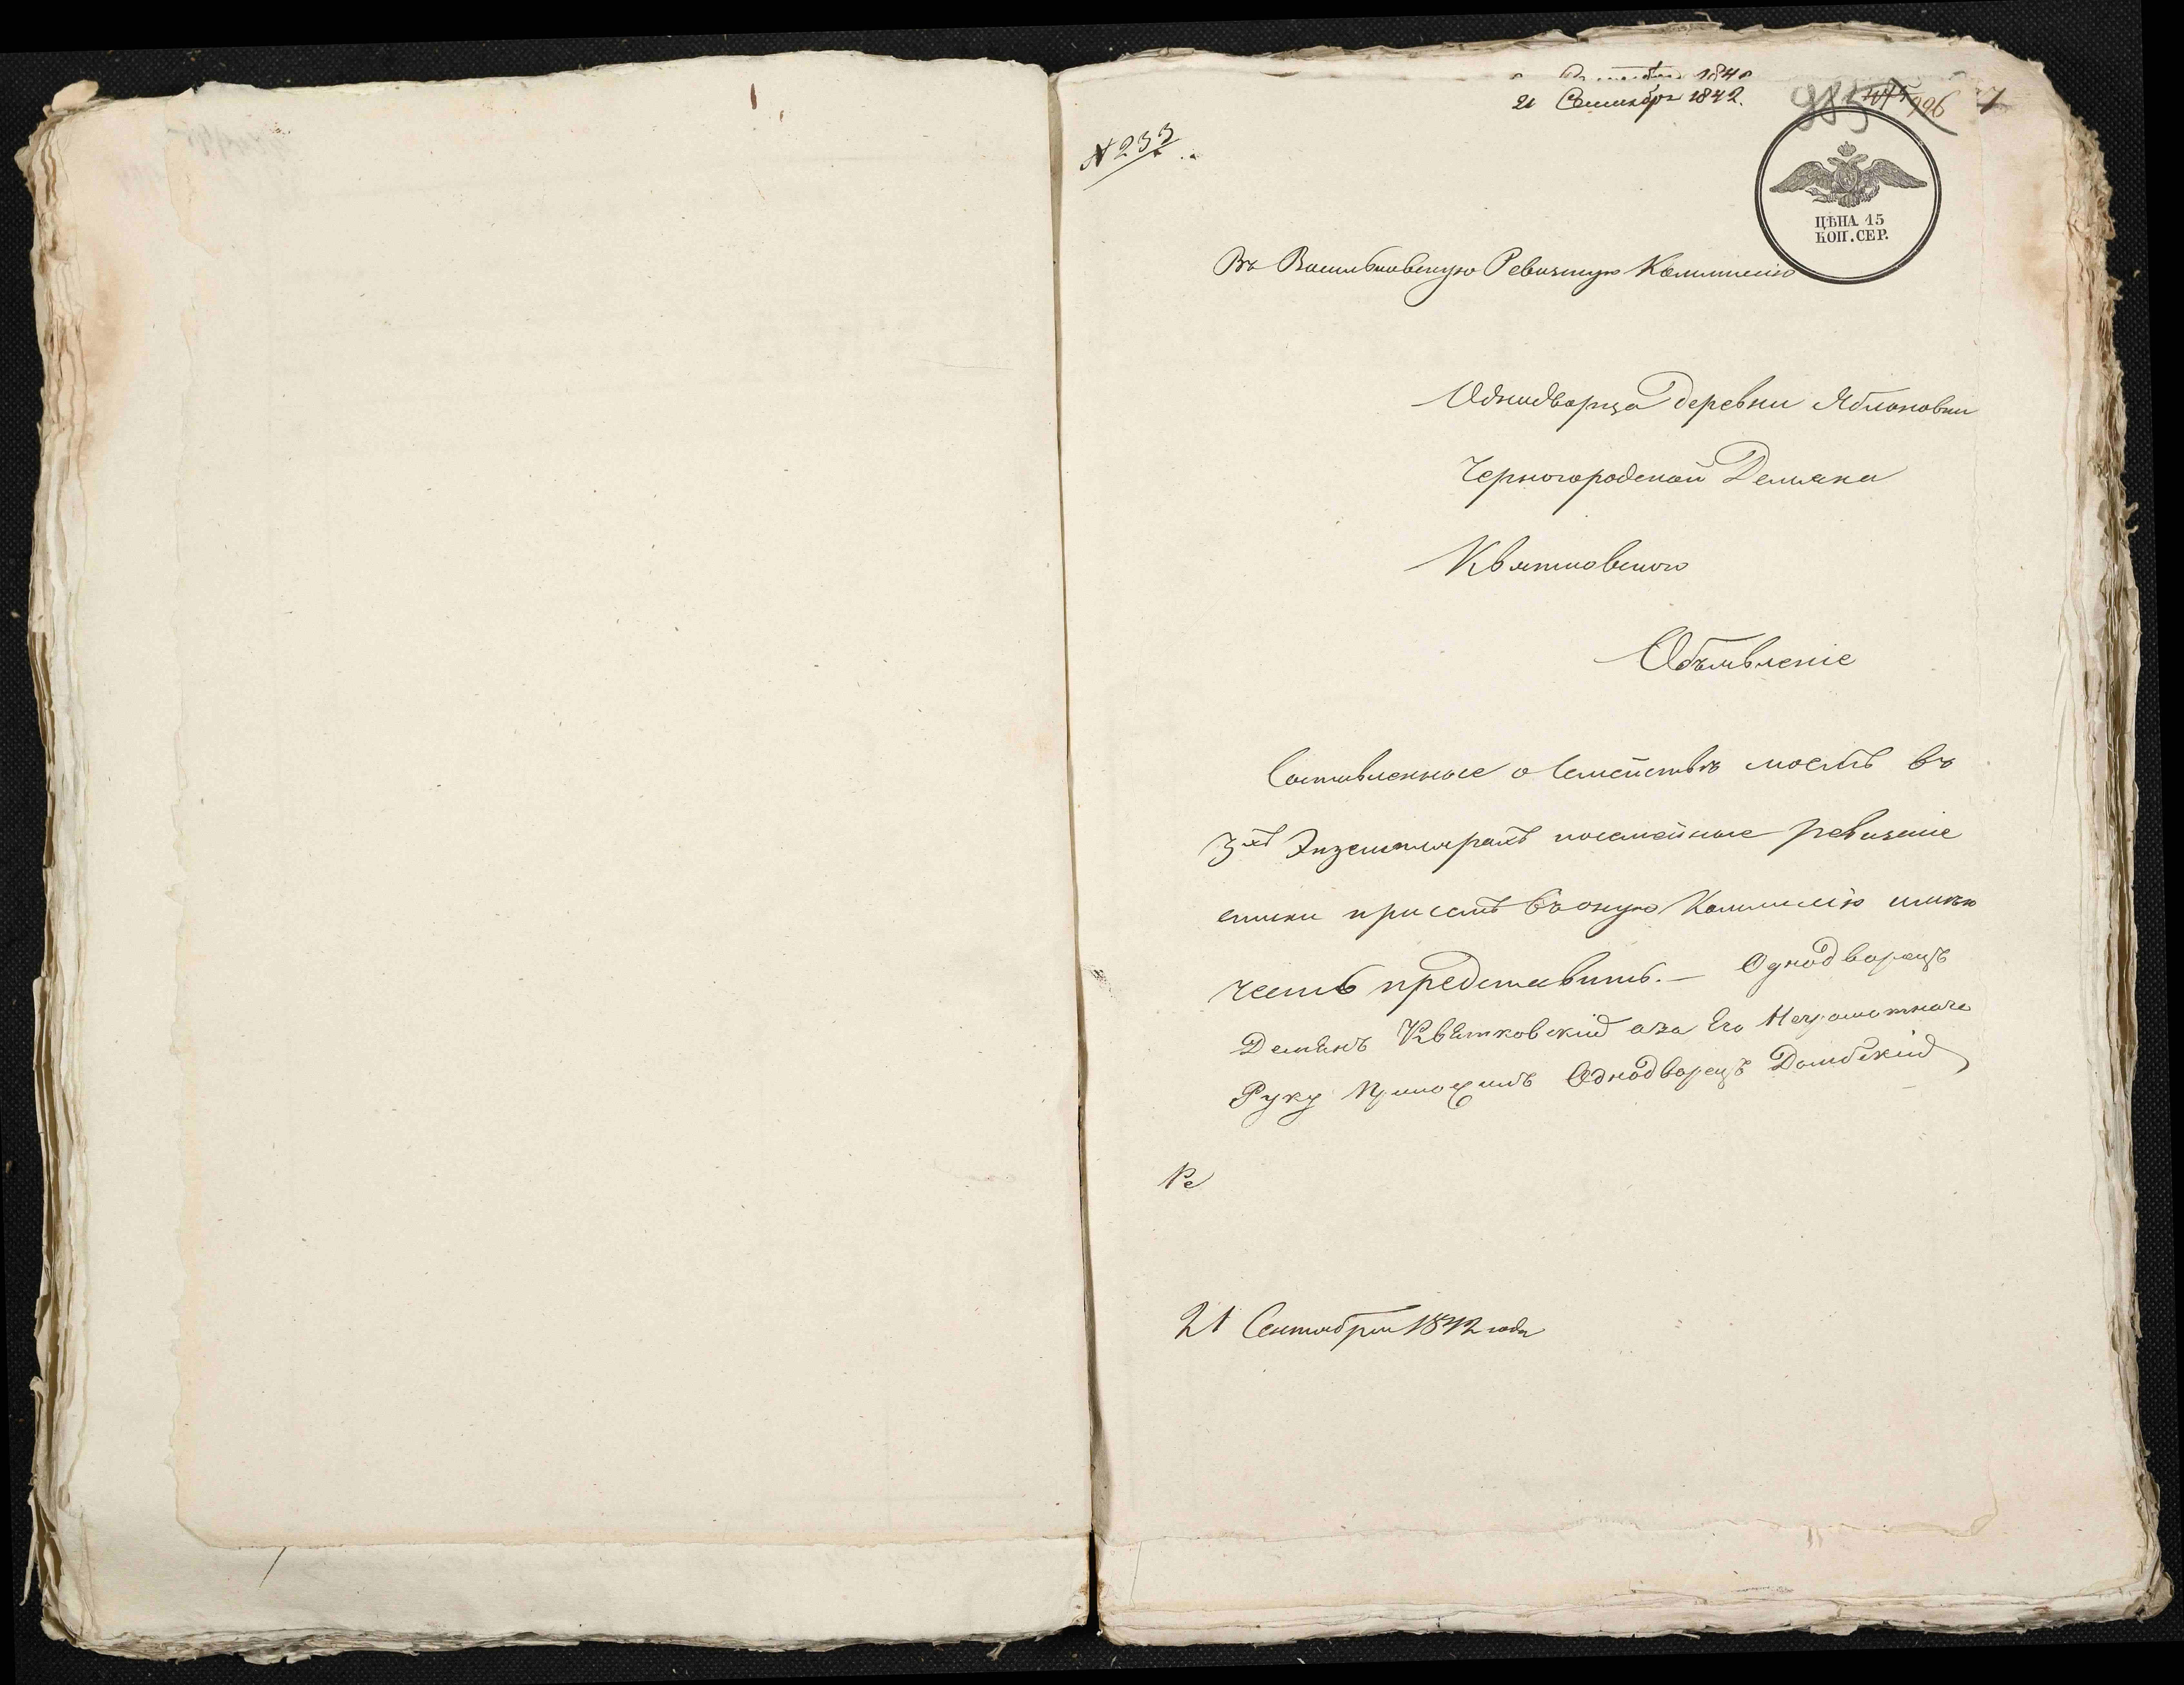 Сентября 1842
21 Сентября 1842.
985 475 996 1
N 233
ЦѢНА 15
КОП. СЕР.
Въ Васильковскую Ревизскую Коммисию
Однодворца деревни Яблоновки
Черногородской Демяна
Квятковского
Объявленіе
Составленные о Семействѣ моемъ въ
3хъ Экземплярахъ посемейные ревизскіе
списки при семъ въ оную Коммисію имѣю
честь представить.— Однодворецъ
Демянъ Квятковскій аза Его Неграмотнаго
Руку Приложилъ Однодворецъ Домбскій
Ре
21 Сентября 1842 года